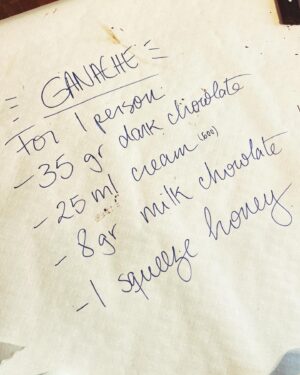 GANACHE
For 1 person
- 35 gr dark chocolate
- 25 ml cream
- 8 gr milk chocolate
- 1 squeeze honey